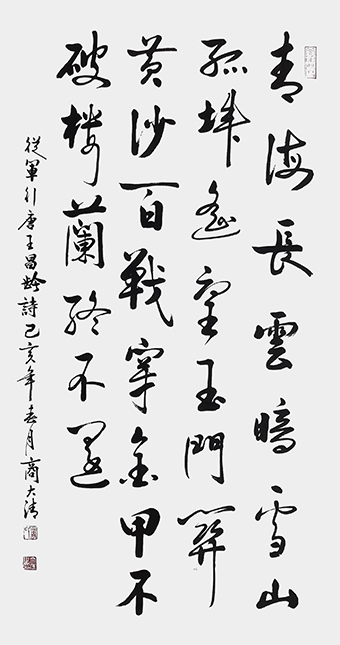 青海長雲暗雪山
孤城遙望玉門關
黃沙百戰穿金甲不
破樓蘭終不還
從軍引唐王昌齡詩己亥年春月商大清